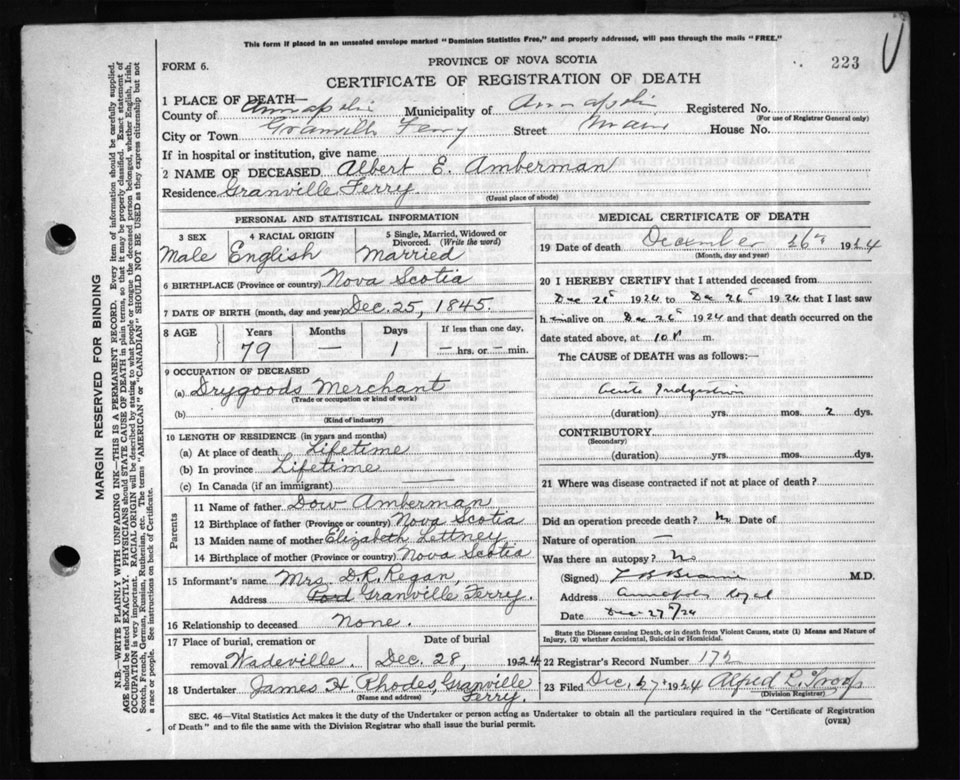 This form if placed in an unsealed envelope marked "Dominion Statistics Free," and properly addressed, will pass through the mails "FREE."
FORM 6.
PROVINCE OF NOVA SCOTIA
223
CERTIFICATE OF REGISTRATION OF DEATH
1 PLACE OF DEATH—
County of Annapolis Municipality of Annapolis Registered No.
(For use of Registrar General only)
City or Town Granville Ferry Street Main House No.
If in hospital or institution, give name
2 NAME OF DECEASED Albert E. Amberman
Residence Granville Ferry
(Usual place of abode)
PERSONAL AND STATISTICAL INFORMATION
3 SEX 4 RACIAL ORIGIN 5 Single, Married, Widowed or Divorced. (Write the word)
Male English Married
6 BIRTHPLACE (Province or country) Nova Scotia
7 DATE OF BIRTH (month, day and year) Dec. 25, 1845.
8 AGE Years Months Days If less than one day,
79 — 1 — hrs. or — min.
9 OCCUPATION OF DECEASED
(a) Drygoods Merchant
(Trade or occupation or kind of work)
(b)
(Kind of industry)
10 LENGTH OF RESIDENCE (in years and months)
(a) At place of death Lifetime
(b) In province Lifetime
(c) In Canada (if an immigrant)
Parents
11 Name of father Dow Amberman
12 Birthplace of father (Province or country) Nova Scotia
13 Maiden name of mother Elizabeth Lettney
14 Birthplace of mother (Province or country) Nova Scotia
15 Informant's name Mrs. D.R. Regan,
Address Granville Ferry.
16 Relationship to deceased None.
17 Place of burial, cremation or removal Wadeville. Date of burial Dec. 28, 1924
18 Undertaker James H Rhodes, Granville Ferry.
(Name and address)
MEDICAL CERTIFICATE OF DEATH
19 Date of death December 26th 1924
(Month, day and year)
20 I HEREBY CERTIFY that I attended deceased from
Dec 1924 to Dec 26 1924 that I last saw
him alive on Dec 26 1924 and that death occurred on the
date stated above, at m.
The CAUSE of DEATH was as follows:—
Acute Indigestion
(duration) yrs. mos. 2 dys.
CONTRIBUTORY
(Secondary)
(duration) yrs. mos. dys.
21 Where was disease contracted if not at place of death?
Did an operation precede death? No Date of
Nature of operation —
Was there an autopsy? No
(Signed) M.D.
Address Annapolis Royal
Date Dec 27/24
State the Disease causing Death, or in death from Violent Causes, state (1) Means and Nature of
Injury, (2) whether Accidental, Suicidal or Homicidal.
22 Registrar's Record Number 172
23 Filed Dec, 27, 1924 Alfred L. Troop
(Division Registrar)
SEC. 46—Vital Statistics Act makes it the duty of the Undertaker or person acting as Undertaker to obtain all the particulars required in the "Certificate of Registration
of Death" and to file the same with the Division Registrar who shall issue the burial permit.
(OVER)
MARGIN RESERVED FOR BINDING
N.B.—WRITE PLAINLY WITH UNFADING INK—THIS IS A PERMANENT RECORD. Every item of information should be carefully supplied.
AGE should be stated EXACTLY. PHYSICIANS should STATE CAUSE OF DEATH in plain terms, so that it may be properly classified. Exact statement of
OCCUPATION is very important. RACIAL ORIGIN will be described by stating to what people or tongue the deceased person belonged, whether English, Irish,
Scotch, French, German, Russian, Ruthenian, etc. The terms "AMERICAN" or "CANADIAN" SHOULD NOT BE USED as they express citizenship but not
a race or people. See instructions on back of Certificate.